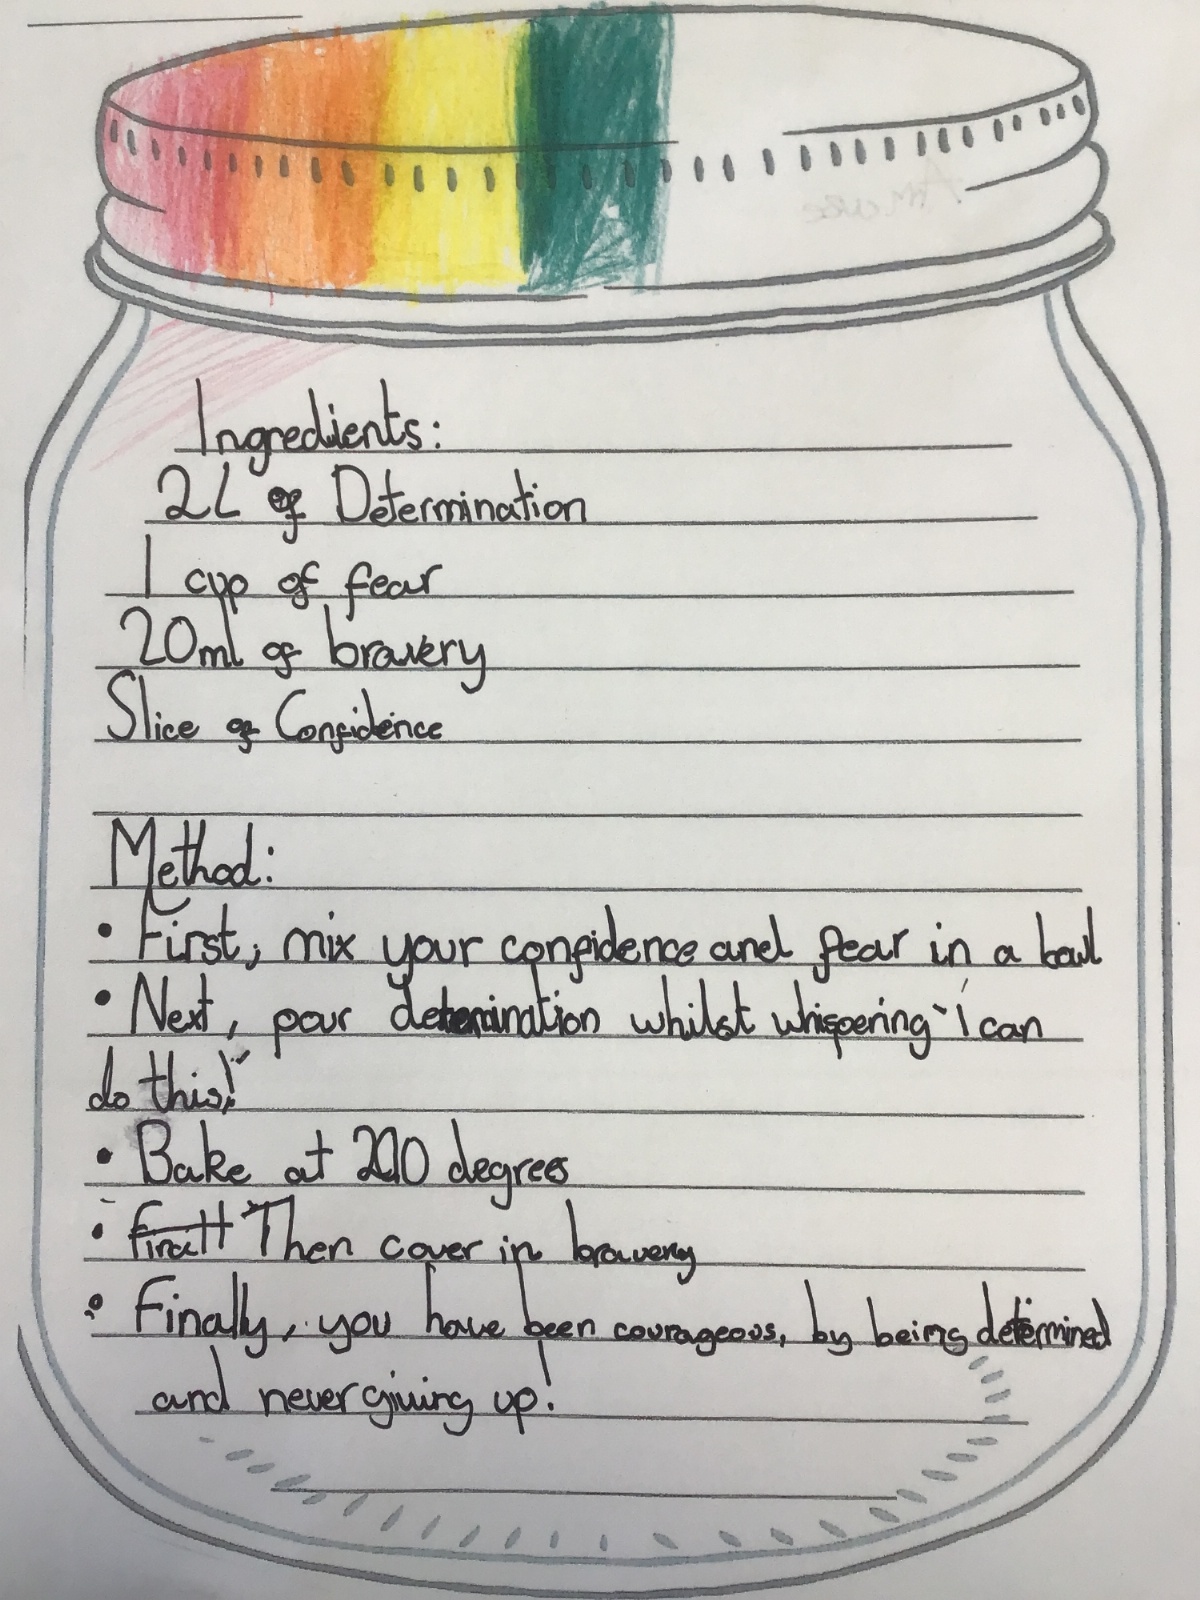 Ingredients:
2L of Determination
1 cup of fear
20ml of bravery
Slice of Confidence
Method:
• First, mix your confidence and fear in a bowl
• Next, pour determination whilst whispering "I can
do this!"
• Bake at 200 degrees
• Then cover in bravery
• Finally, you have been courageous, by being determined
and never giving up!